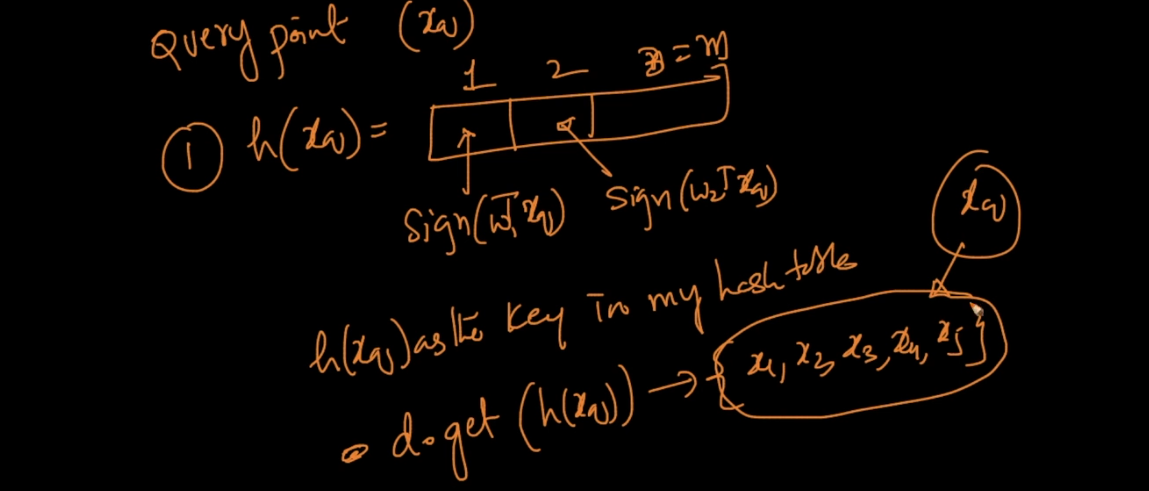 Query point (xq)
1 2 m = m
① h(xq) =
Sign(w1ᵀxq) Sign(w2ᵀxq)
xq
h(xq) as the key in my hash table
d.get(h(xq)) → {x1, x2, x3, x4, x5}